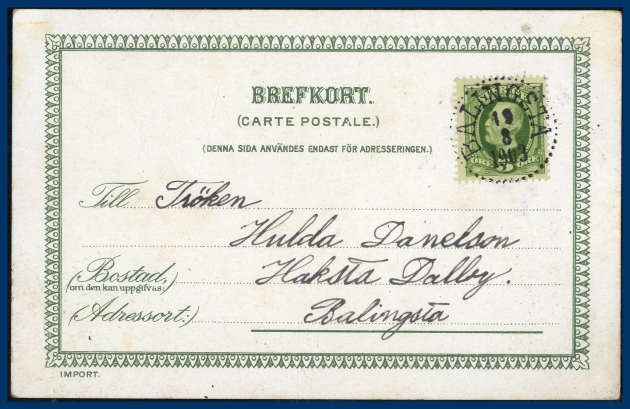 BREFKORT.
(CARTE POSTALE.)
(DENNA SIDA ANVÄNDES ENDAST FÖR ADRESSERINGEN.)
BALINGSTA
19
8
1903
ÖRE
Till Fröken
Hulda Danelson
(Bostad,) Haksta Dalby.
(om den kan uppgifvas;)
(Adressort:) Balingsta
IMPORT.